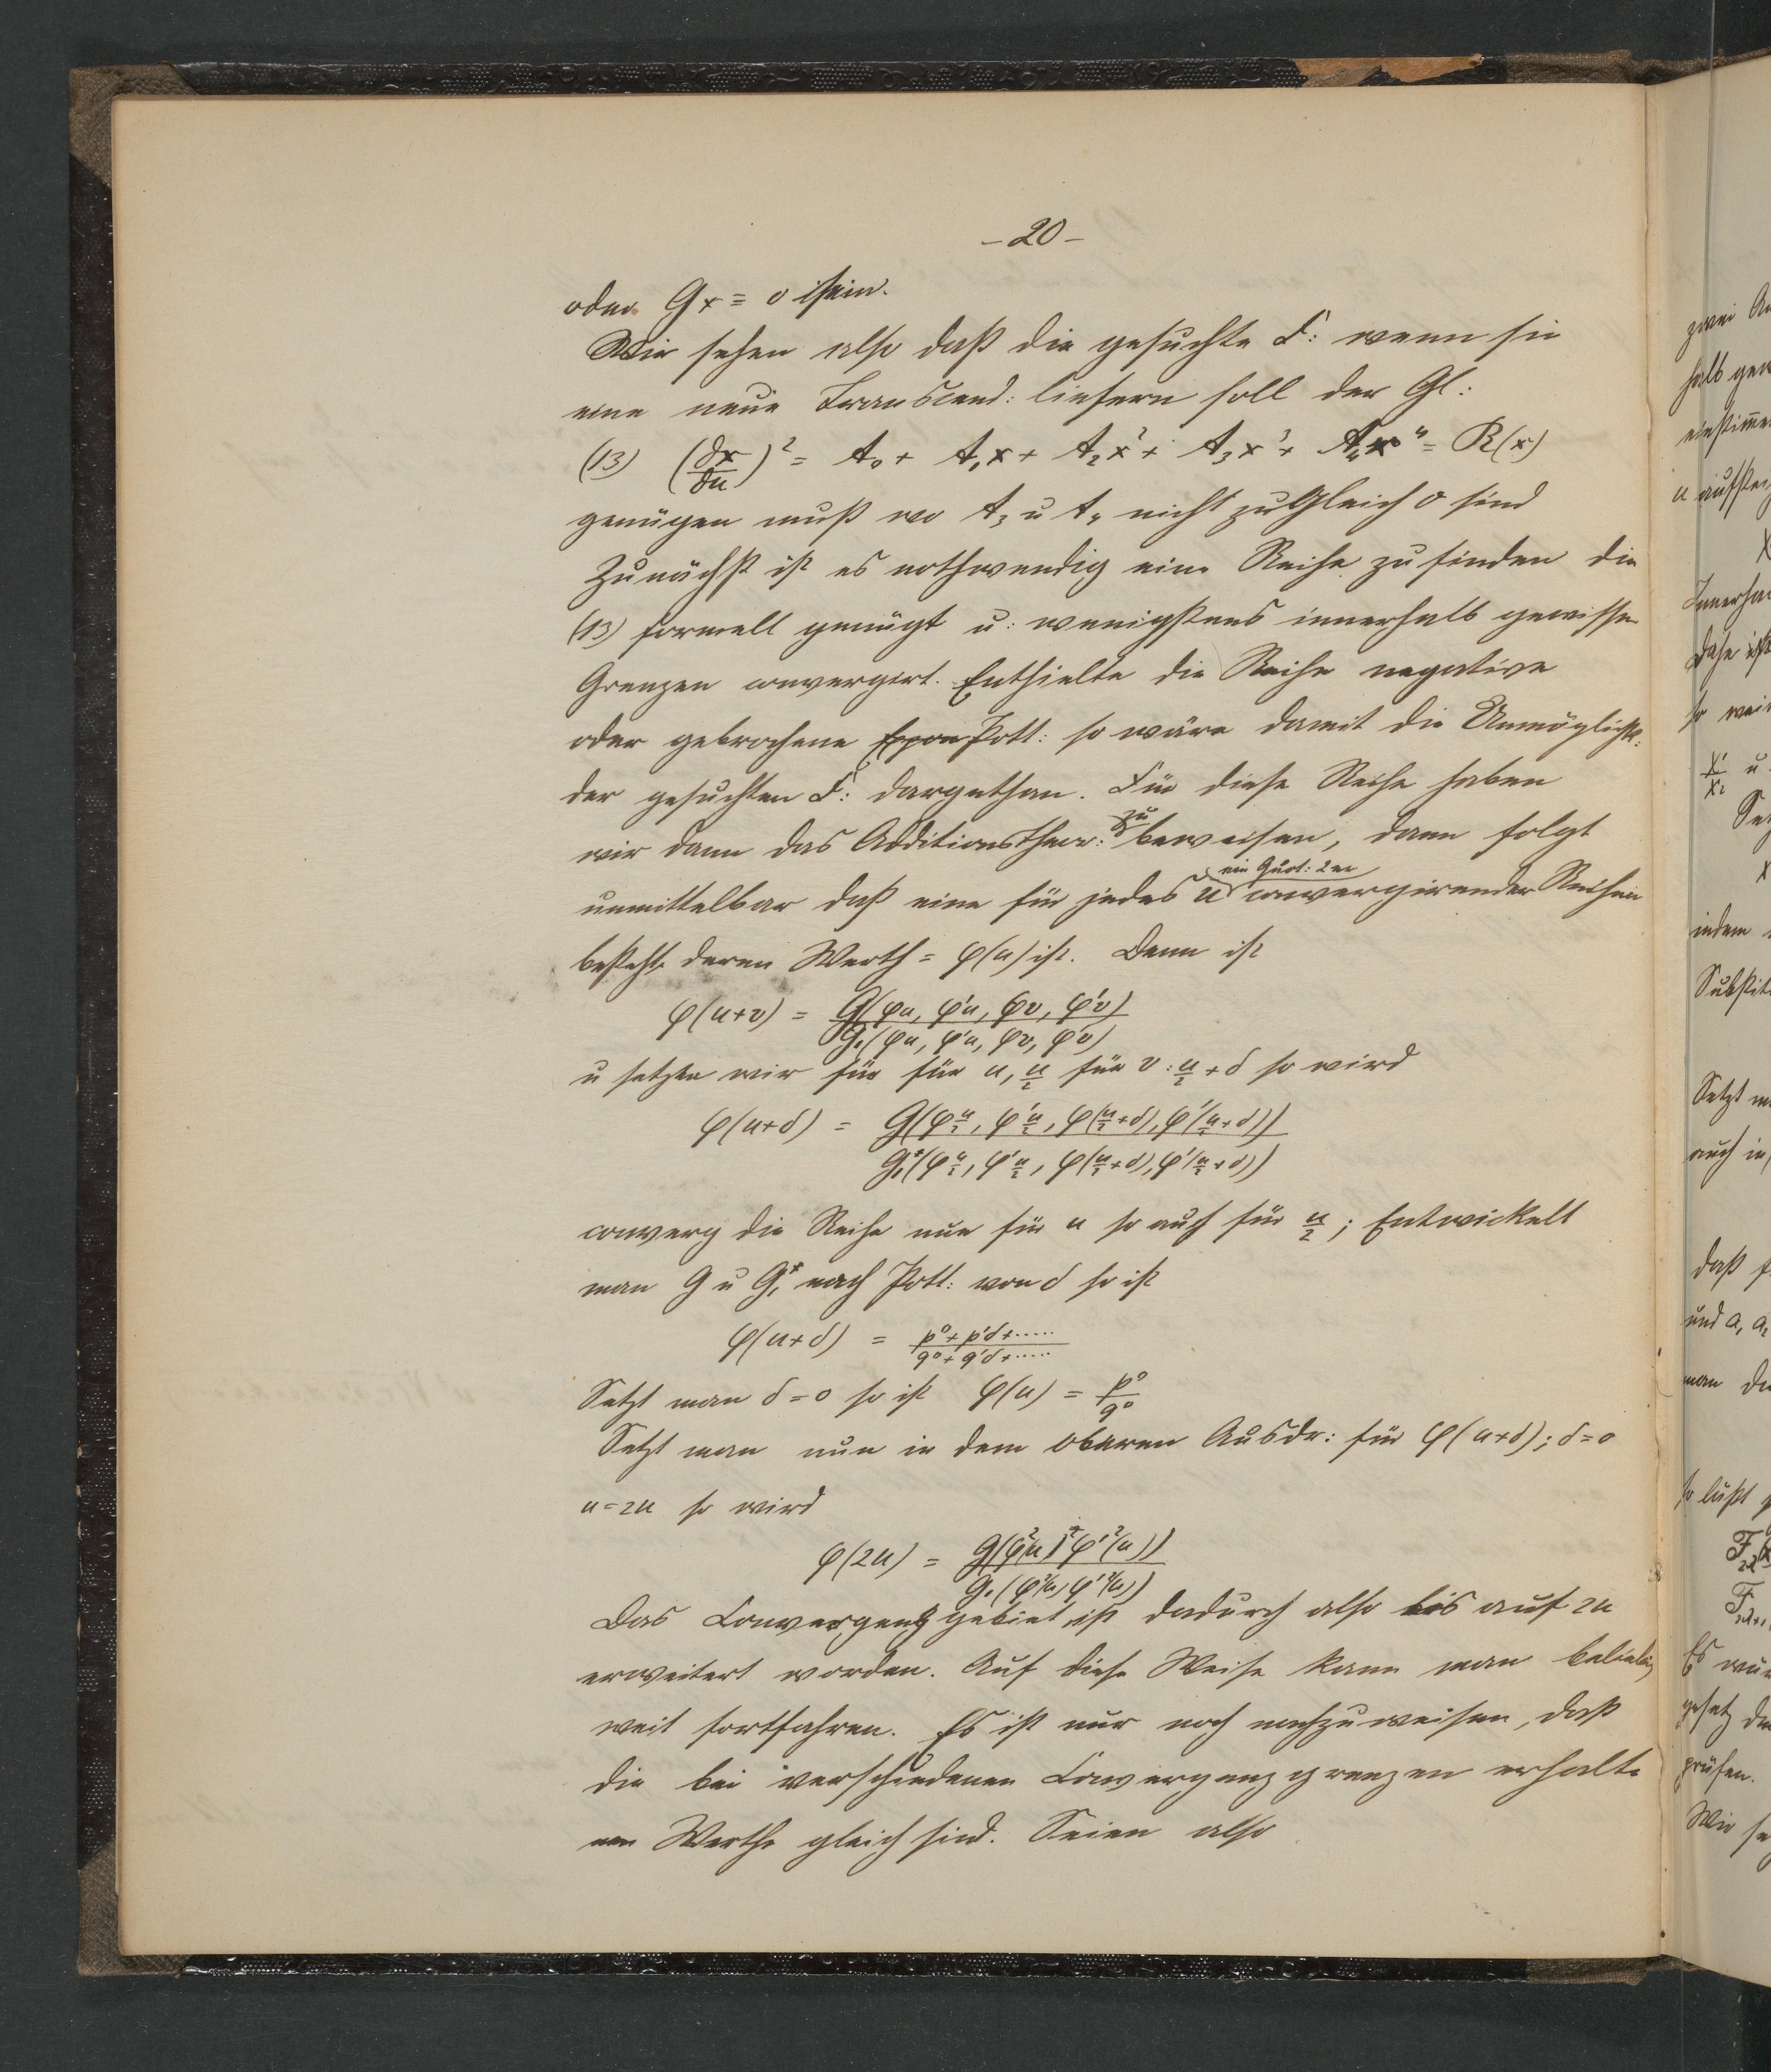 – 20 –
oder Gx = 0 sein.
Wir sehen also daß die gesuchte F: wenn sie
eine neue Transcend: liefern soll der Gl:
(13) (dx/du)² = A₀ + A₁x + A₂x² + A₃x³ + A₄x⁴ = R(x)
genügen muß wo A₃ u A₄ nicht zugleich 0 sind
Zunächst ist es nothwendig eine Reihe zu finden die
(13) formell genügt u: wenigstens innerhalb gewisser
Grenzen convergirt. Enthielte die Reihe negative
oder gebrochene Pott: so wäre damit die Unmöglichk:
der gesuchten F: dargethan. Für diese Reihe haben
wir dann das Additionstheor: zu beweisen, dann folgt
unmittelbar daß eine für jedes u ein Quot: 2er convergirender Reihen
besteht deren Werth = φ(u) ist. Denn ist
φ(u+v) = G(φu, φ'u, φv, φ'v) / G₁(φu, φ'u, φv, φ'v)
u setzen wir für für u, u/2 für v: u/2 + δ so wird
φ(u+δ) = G(φ u/2, φ' u/2, φ(u/2+δ), φ'(u/2+δ)) / G₁*(φ u/2, φ' u/2, φ(u/2+δ), φ'(u/2+δ))
converg die Reihe nun für u so auch für u/2; Entwickelt
man G u G₁* nach Pott: von δ so ist
φ(u+δ) = p⁰ + p'δ + ..... / q⁰ + q'δ + .....
Setzt man δ = 0 so ist φ(u) = p⁰/q⁰
Setzt man nun in dem oberen Ausdr: für φ(u+δ); δ = 0
u = 2u so wird
φ(2u) = G(φ²(u) φ'²(u)) / G₁(φ²(u) φ'²(u))
Das Convergenzgebiet ist dadurch also bis auf 2u
erweitert worden. Auf diese Weise kann man beliebig
weit fortfahren. Es ist nur noch nachzuweisen, daß
die bei verschiedenen Convergenzgrenzen erhalte
nen Werthe gleich sind. Seien also